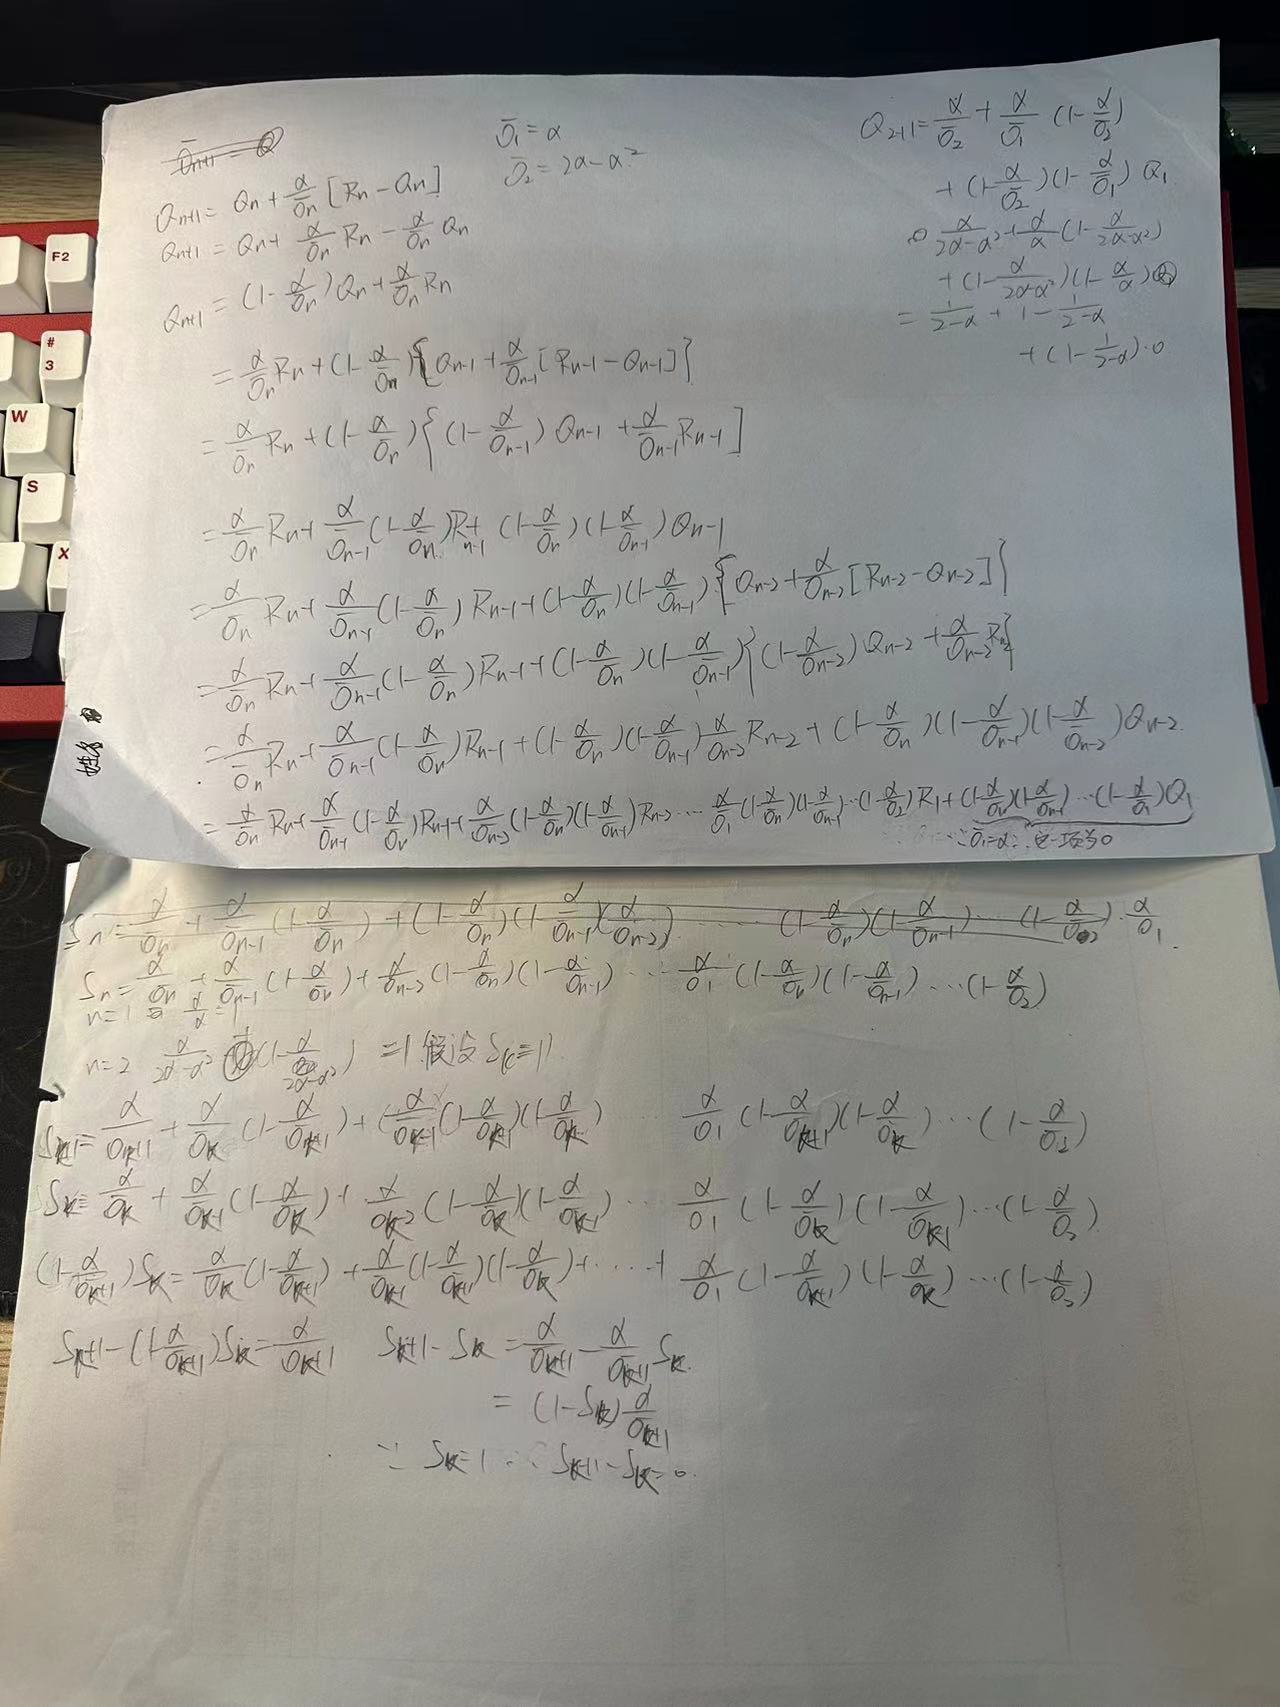 Ō₁ = α
Ō₂ = 2α - α²
Qₙ₊₁ = Qₙ + α/Ōₙ [Rₙ - Qₙ]
Qₙ₊₁ = Qₙ + α/Ōₙ Rₙ - α/Ōₙ Qₙ
Qₙ₊₁ = (1 - α/Ōₙ)Qₙ + α/Ōₙ Rₙ
= α/Ōₙ Rₙ + (1 - α/Ōₙ){Qₙ₋₁ + α/Ōₙ₋₁ [Rₙ₋₁ - Qₙ₋₁]}
= α/Ōₙ Rₙ + (1 - α/Ōₙ){(1 - α/Ōₙ₋₁)Qₙ₋₁ + α/Ōₙ₋₁ Rₙ₋₁]
= α/Ōₙ Rₙ + α/Ōₙ₋₁ (1 - α/Ōₙ)Rₙ₋₁ + (1 - α/Ōₙ)(1 - α/Ōₙ₋₁)Qₙ₋₁
= α/Ōₙ Rₙ + α/Ōₙ₋₁ (1 - α/Ōₙ)Rₙ₋₁ + (1 - α/Ōₙ)(1 - α/Ōₙ₋₁){Qₙ₋₂ + α/Ōₙ₋₂ [Rₙ₋₂ - Qₙ₋₂]}
= α/Ōₙ Rₙ + α/Ōₙ₋₁ (1 - α/Ōₙ)Rₙ₋₁ + (1 - α/Ōₙ)(1 - α/Ōₙ₋₁){(1 - α/Ōₙ₋₂)Qₙ₋₂ + α/Ōₙ₋₂ Rₙ₋₂}
= α/Ōₙ Rₙ + α/Ōₙ₋₁ (1 - α/Ōₙ)Rₙ₋₁ + (1 - α/Ōₙ)(1 - α/Ōₙ₋₁) α/Ōₙ₋₂ Rₙ₋₂ + (1 - α/Ōₙ)(1 - α/Ōₙ₋₁)(1 - α/Ōₙ₋₂)Qₙ₋₂
= α/Ōₙ Rₙ + α/Ōₙ₋₁ (1 - α/Ōₙ)Rₙ₋₁ + α/Ōₙ₋₂ (1 - α/Ōₙ)(1 - α/Ōₙ₋₁)Rₙ₋₂ ... α/Ō₁ (1 - α/Ōₙ)(1 - α/Ōₙ₋₁)...(1 - α/Ō₂)R₁ + (1 - α/Ōₙ)(1 - α/Ōₙ₋₁)...(1 - α/Ō₁)Q₁
∵ Ō₁ = α ∴ 这一项为0
Q₂₊₁ = α/Ō₂ + α/Ō₁ (1 - α/Ō₂)
+ (1 - α/Ō₂)(1 - α/Ō₁) Q₁
α/(2α-α²) + α/α (1 - α/(2α-α²))
+ (1 - α/(2α-α²))(1 - α/α)Q₁
= 1/(2-α) + 1 - 1/(2-α)
+ (1 - 1/(2-α))·0
姓名
Sₙ = α/Ōₙ + α/Ōₙ₋₁ (1 - α/Ōₙ) + (1 - α/Ōₙ)(1 - α/Ōₙ₋₁)(α/Ōₙ₋₂) ... (1 - α/Ōₙ)(1 - α/Ōₙ₋₁)...(1 - α/Ō₂)·α/Ō₁
Sₙ = α/Ōₙ + α/Ōₙ₋₁ (1 - α/Ōₙ) + α/Ōₙ₋₂ (1 - α/Ōₙ)(1 - α/Ōₙ₋₁) ... α/Ō₁ (1 - α/Ōₙ)(1 - α/Ōₙ₋₁)...(1 - α/Ō₂)
n=1 α/α = 1
n=2 α/(2α-α²) (1 - α/(2α-α²)) = 1 假设 Sₖ=1
Sₖ₊₁ = α/Ōₖ₊₁ + α/Ōₖ (1 - α/Ōₖ₊₁) + (α/Ōₖ₋₁ (1 - α/Ōₖ₊₁)(1 - α/Ōₖ) ... α/Ō₁ (1 - α/Ōₖ₊₁)(1 - α/Ōₖ)...(1 - α/Ō₂)
Sₖ = α/Ōₖ + α/Ōₖ₋₁ (1 - α/Ōₖ) + α/Ōₖ₋₂ (1 - α/Ōₖ)(1 - α/Ōₖ₋₁) ... α/Ō₁ (1 - α/Ōₖ)(1 - α/Ōₖ₋₁)...(1 - α/Ō₂)
(1 - α/Ōₖ₊₁)Sₖ = α/Ōₖ (1 - α/Ōₖ₊₁) + α/Ōₖ₋₁ (1 - α/Ōₖ₊₁)(1 - α/Ōₖ) + ... + α/Ō₁ (1 - α/Ōₖ₊₁)(1 - α/Ōₖ)...(1 - α/Ō₂)
Sₖ₊₁ - (1 - α/Ōₖ₊₁)Sₖ = α/Ōₖ₊₁ Sₖ₊₁ - Sₖ = α/Ōₖ₊₁ - α/Ōₖ₊₁ Sₖ
= (1 - Sₖ) α/Ōₖ₊₁
∵ Sₖ = 1 ∴ Sₖ₊₁ - Sₖ = 0.
F2
#
3
W
S
X